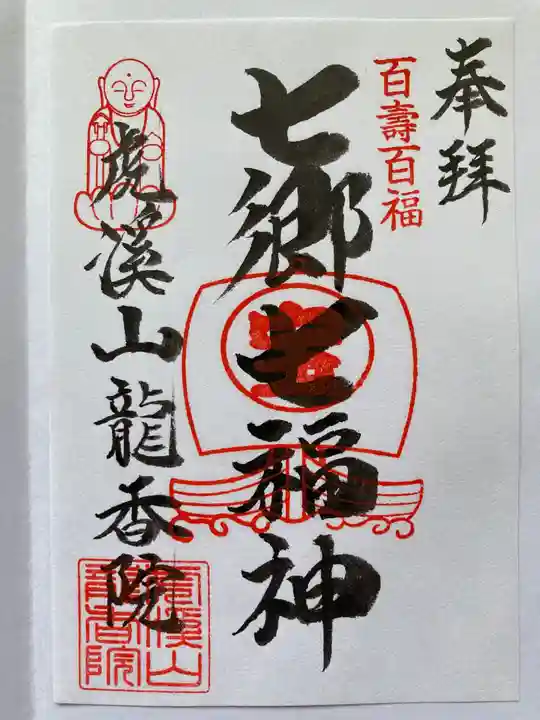 奉拝
百壽百福
七郷七福神
虎溪山龍香院
虎溪山龍香院